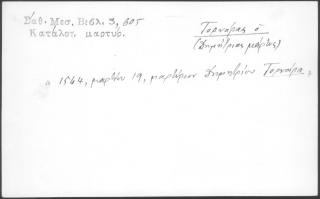 Σαθ. Μεσ. Βιβλ. 3, 605
Κατάλογ. μαρτύρ.
Τορνάρας ὁ
(Δημήτριος μάρτυς)
1564, μαρτίου 19, μαρτύριον Δημητρίου Τορνάρα